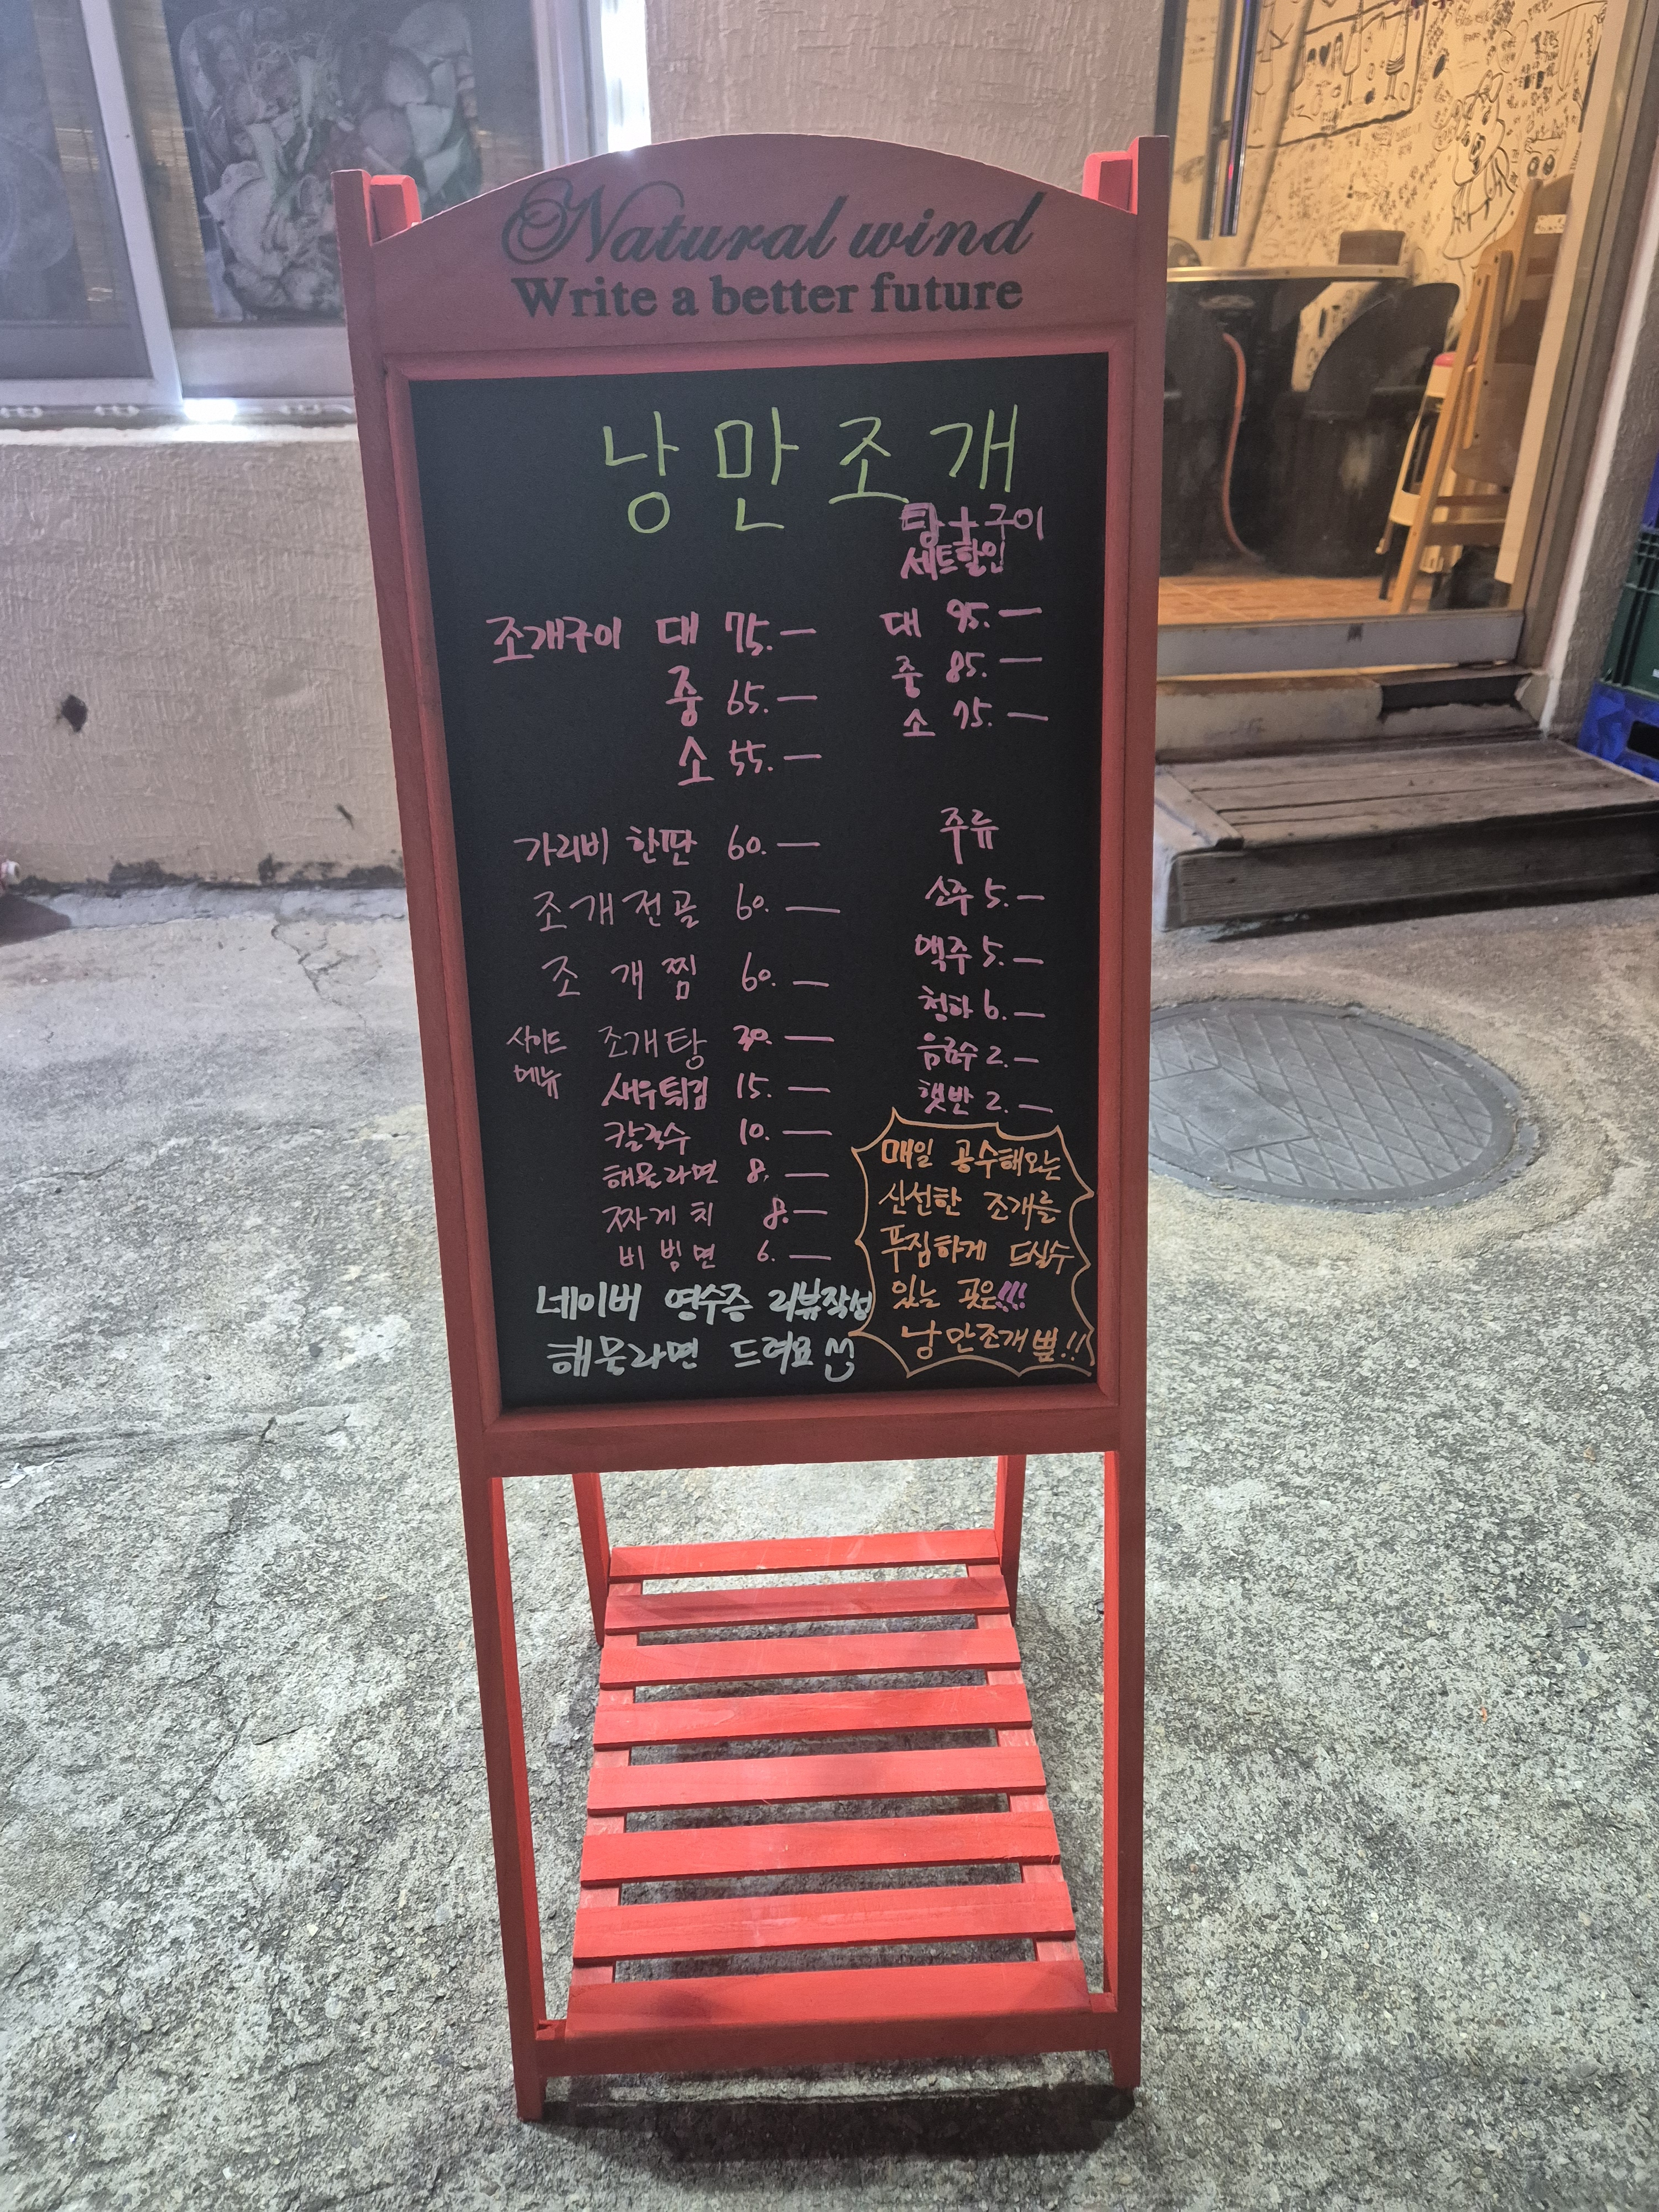 Natural wind
Write a better future
낭만조개
탕+구이
세트할인
조개구이 대 75.—
중 65.—
소 55.—
대 95.—
중 85.—
소 75.—
가리비 한판 60.—
조개전골 60.—
조개찜 60.—
사이드
메뉴
조개탕 30.—
새우튀김 15.—
칼국수 10.—
해물라면 8.—
짜게치 8.—
비빔면 6.—
주류
소주 5.—
맥주 5.—
청하 6.—
음료수 2.—
햇반 2.—
매일 공수해오는
신선한 조개를
푸짐하게 드실수
있는 곳은!!!
낭만조개뿐!!
네이버 영수증 리뷰작성
해물라면 드려요